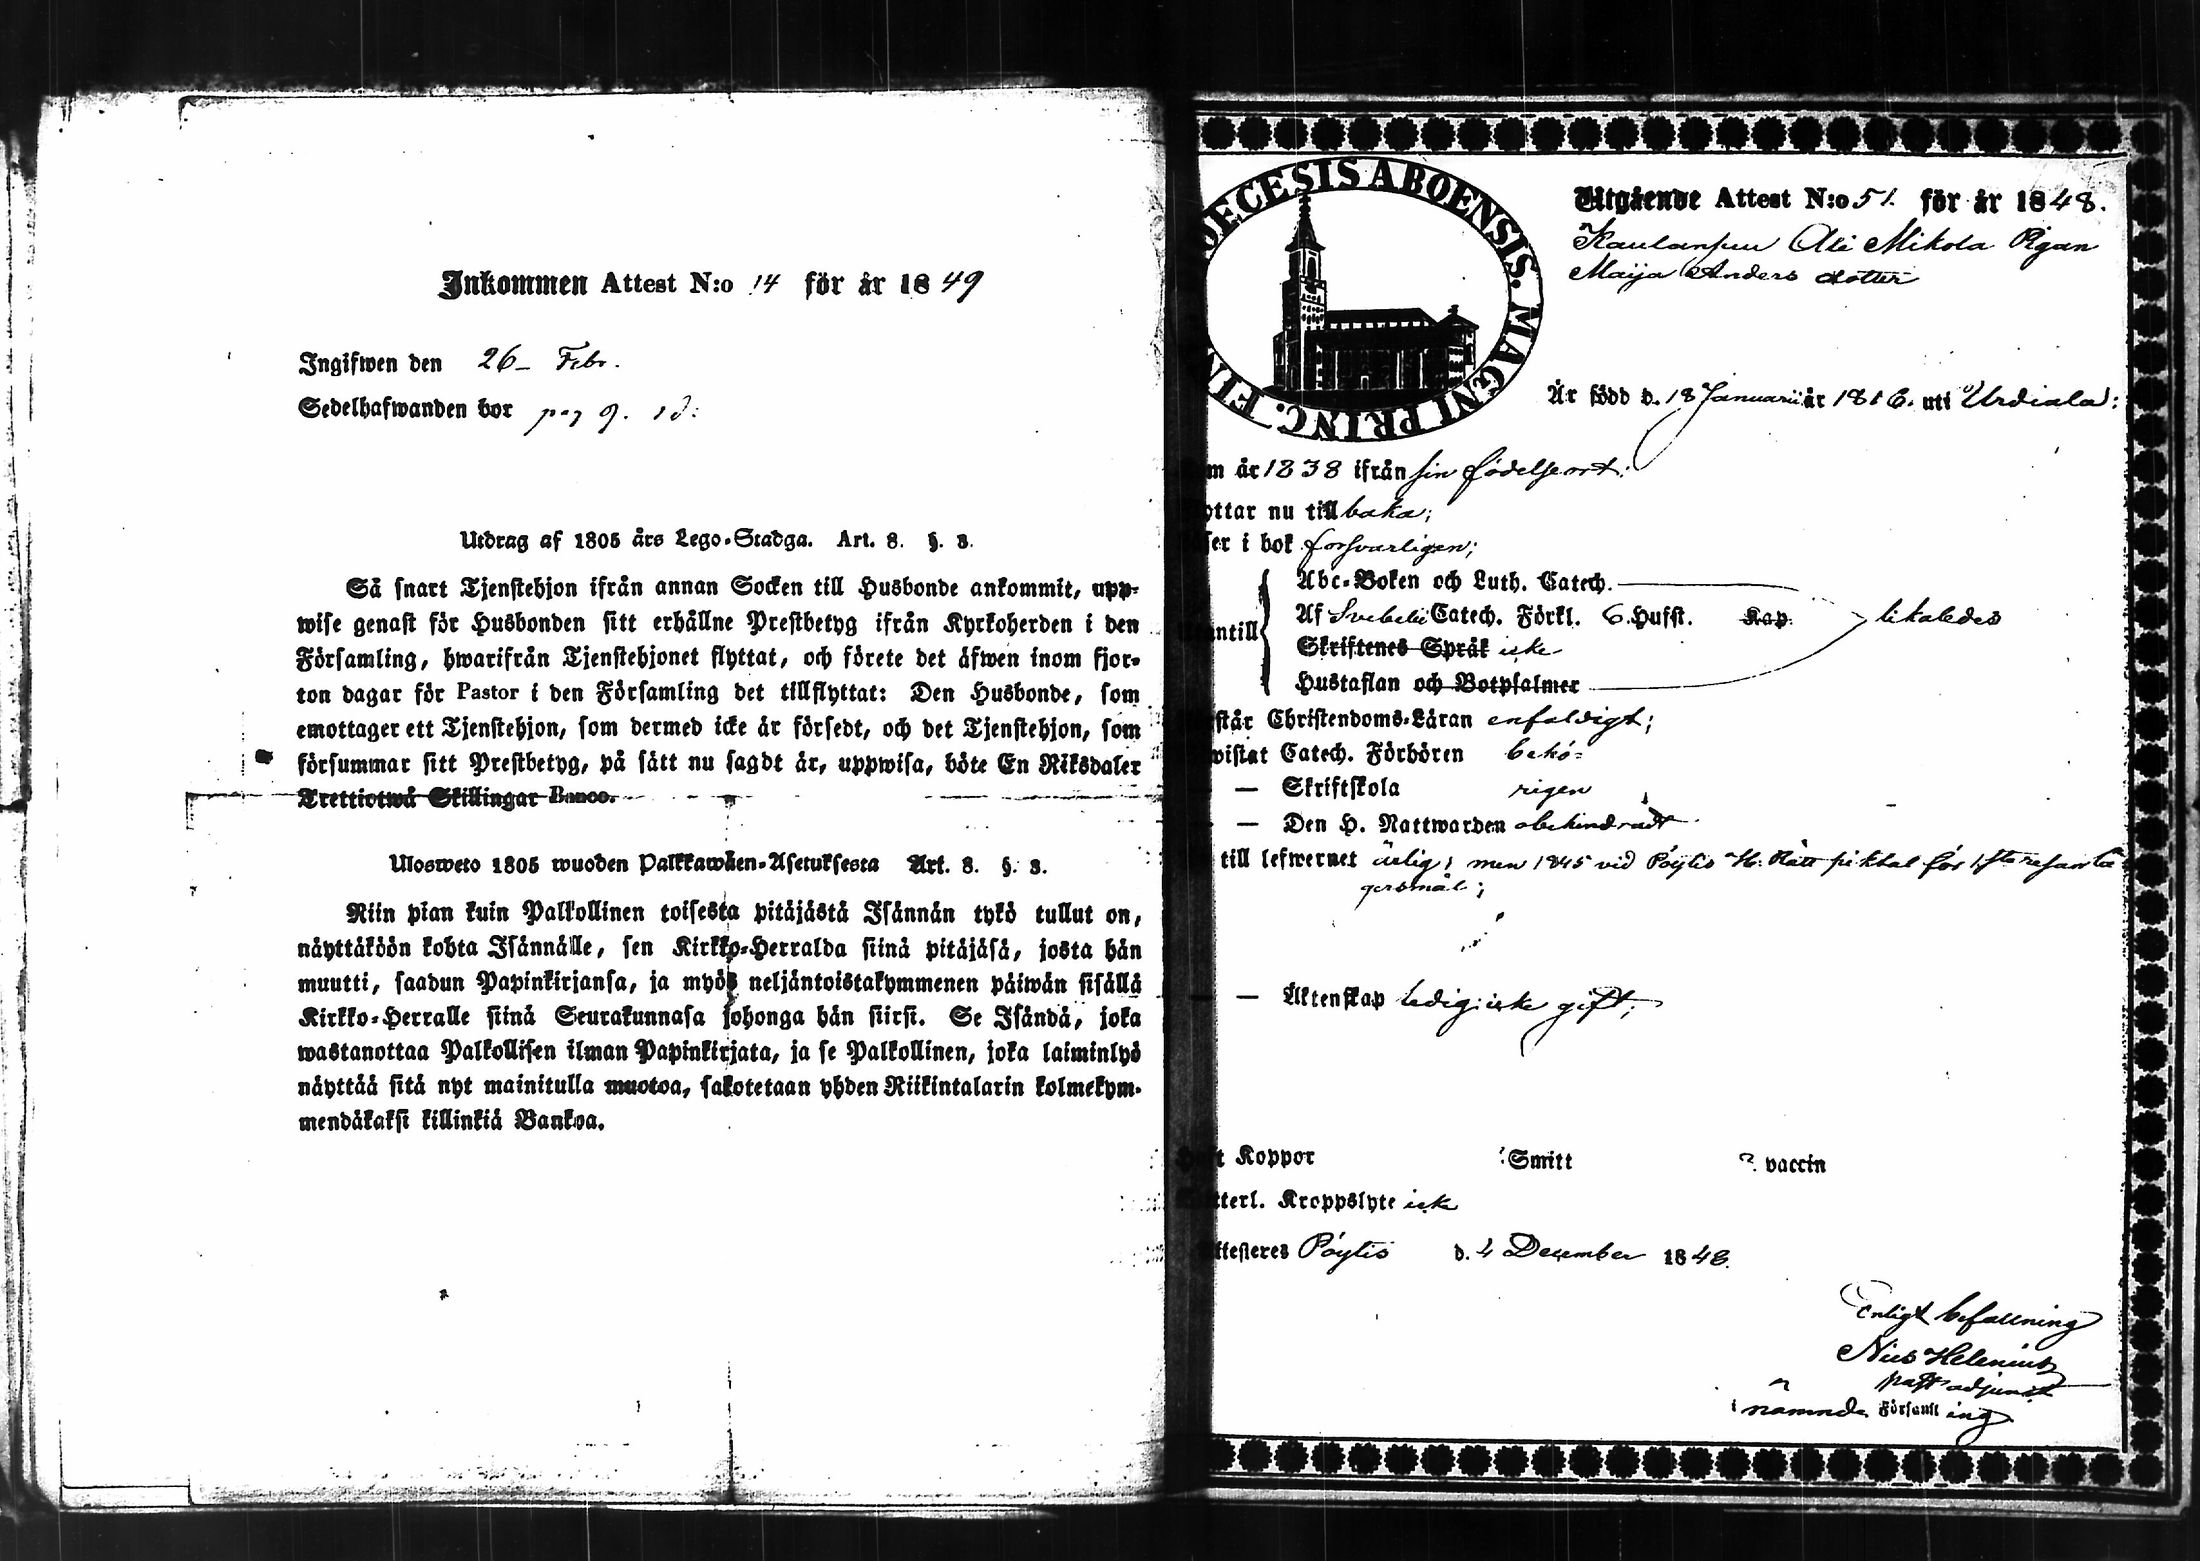 Inkommen Attest N:o 14 för år 1849
Ingifwen den 26 Febr.
Sedelhafwanden bor pag 9.
Utdrag af 1805 års Lego-Stadga. Art. 8. §. 3.
Så snart Tjenstehjon ifrån annan Socken till Husbonde ankommit, upp-
wise genast för Husbonden sitt erhållne Prestbetyg ifrån Kyrkoherden i den
Församling, hwarifrån Tjenstehjonet flyttat, och förete det äfwen inom fjor-
ton dagar för Pastor i den Församling det tillflyttat: Den Husbonde, som
emottager ett Tjenstehjon, som dermed icke är försedt, och det Tjenstehjon, som
försummar sitt Prestbetyg, på sätt nu sagdt är, uppwisa, böte En Riksdaler
Trettiotwå Skillingar Banco.
Ulosweto 1805 wuoden Palkkawäen-Asetuksesta Art. 8. §. 3.
Niin pian kuin Palkollinen toisesta pitäjästä Isännän tykö tullut on,
näyttäköön kohta Isännälle, sen Kirkko-Herralda siinä pitäjäsä, josta hän
muutti, saadun Papinkirjansa, ja myös neljäntoistakymmenen päiwän sisällä
Kirkko-Herralle siinä Seurakunnasa johonga hän siirsi. Se Isändä, joka
wastanottaa Palkollisen ilman Papinkirjata, ja se Palkollinen, joka laiminlyö
näyttää sitä nyt mainitulla muotoa, sakotetaan yhden Riikintalarin kolmekym-
mendäkaksi killinkiä Bankoa.
DECESIS ABOENSIS. MAGNI PRINC. FIN
Utgående Attest N:o 51. för år 1848.
Kaulanpuu Ali Mikola Pigan
Maija Anders dotter
Är född d. 18 Januarii år 1816. uti Urdiala:
m år 1838 ifrån sin födelseort:
ottar nu till baka;
ser i bok försvarligen;
Abc-Boken och Luth. Catech.
Af Svebelii Catech. Förkl. 6. Hufst. Kap. likaledes
antill
Skriftenes Språk icke
Hustaflan och Botpsalmer
står Christendoms-Läran enfaldigt;
wistat Catech. Förhören behö-
— Skriftskola rigen
— Den H. Nattwarden obehindradt
till lefwernet ärlig; men 1845 vid Pöytis H. Rätt pliktat för 1sta resan lä
gersmål;
— Äktenskap ledig: icke gift;
Koppor ? Smitt ? vaccin
tterl. Kroppslyte icke
ttesteres Pöytis d. 4 December 1848.
Enligt befallning
Nils Helenius
past adjunct
i nämnde Församling